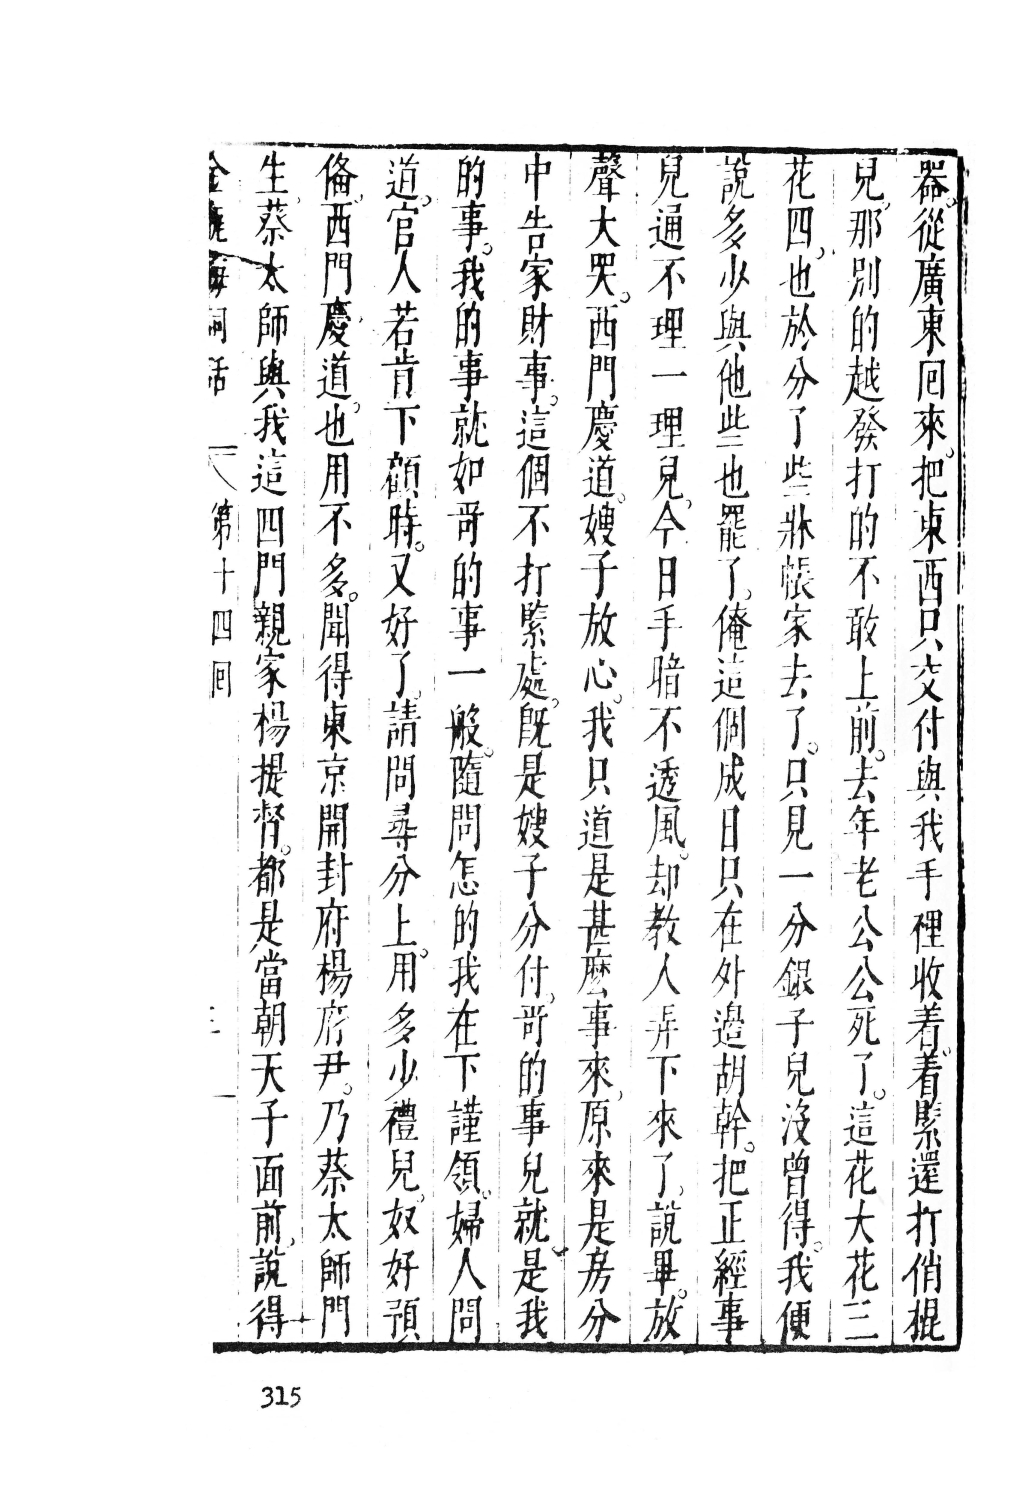 器。從廣東回來。把東西只交付與我手裡收着。着緊還打俏棍
兒。那別的越發打的不敢上前。去年老公公死了。這花大花三
花四。也於分了些牀帳家去了。只見一分銀子兒沒曾得。我便
說多少與他些也罷了。俺這個成日只在外邊胡幹。把正經事
兒通不理一理兒。今日手暗不透風。却教人弄下來了。說畢。放
聲大哭。西門慶道。嫂子放心。我只道是甚麽事來。原來是房分
中告家財事。這個不打緊處。既是嫂子分付。哥的事兒就是我
的事。我的事就如哥的事一般。隨問怎的我在下謹領。婦人問
道。官人若肯下顧時。又好了。請問尋分上。用多少禮兒。奴好預
俻。西門慶道。也用不多。聞得東京開封府楊府尹。乃蔡太師門
生。蔡太師與我這四門親家楊提督。都是當朝天子面前。說得
金瓶梅詞話 第十四回
315